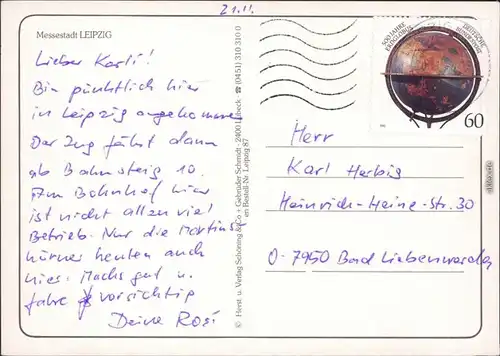 21.11.
Messestadt LEIPZIG
Lieber Karli!
Bin pünktlich hier
in Leipzig angekommen
Der Zug fährt dann
ab Bahnsteig 10.
Am Bahnhof hier
ist nicht allzu viel
Betrieb. Nur die Martins
hörner heulen auch
hier. Machs gut u.
fahre vorsichtig
Deine Rosi
© Horst u. Verlag Schöning & Co + Gebrüder Schmidt · 2400 Lübeck ☎ (0451) 310 310
Bestell-Nr. Leipzig 87
500 JAHRE
ERDGLOBUS
DEUTSCHE
BUNDESPOST
60
Herr
Karl Herbig
Heinrich-Heine-Str. 30
O-7950 Bad Liebenwerda